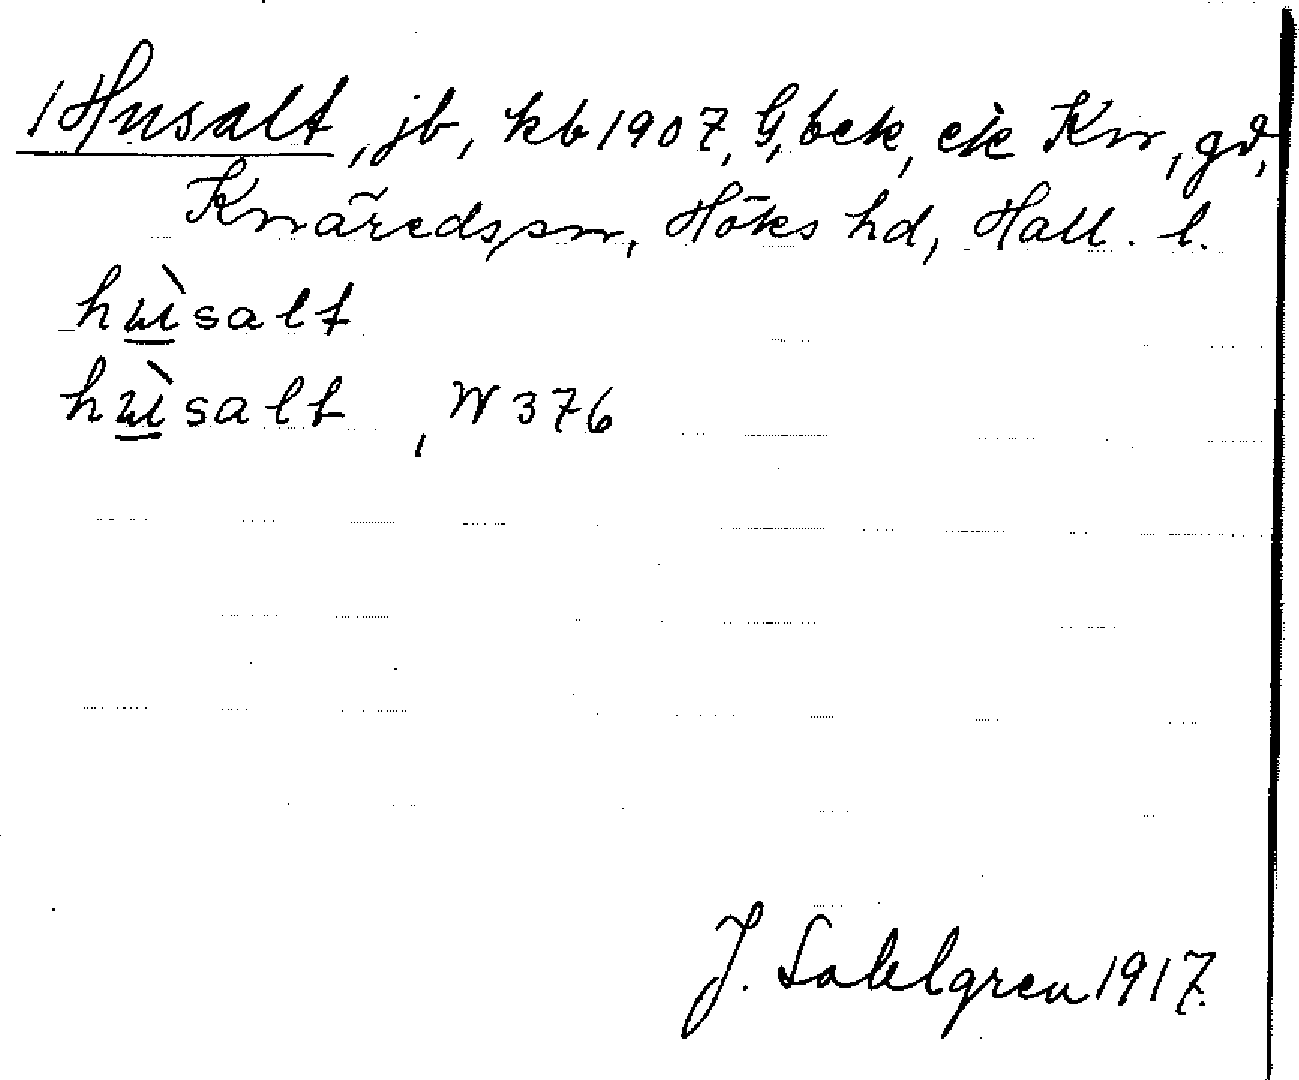 1 Husalt, jb, kb 1907, G, bek, ek Kn, gd,
Knäredspn, Höks hd, Hall. l.
hùsalt
hùsalt , W 376
J. Sahlgren 1917.